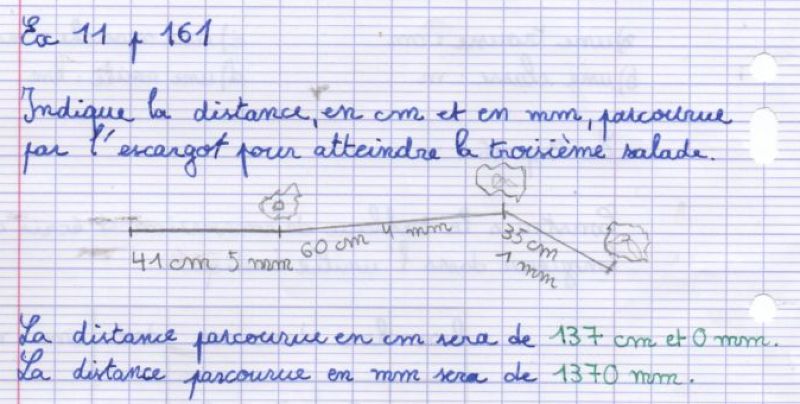 Ex 11 p 161
Indique la distance, en cm et en mm, parcourue
par l'escargot pour atteindre la troisième salade.
41 cm 5 mm
60 cm 4 mm
35 cm
1 mm
La distance parcourue en cm sera de 137 cm et 0 mm.
La distance parcourue en mm sera de 1370 mm.